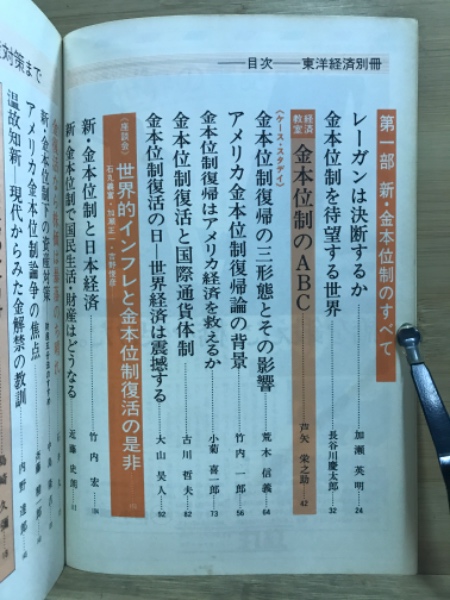 目次──東洋経済別冊
第一部 新・金本位制のすべて
レーガンは決断するか……加瀬 英明…24
金本位制を待望する世界……長谷川慶太郎…32
経済教室 金本位制のABC……芦矢 栄之助…42
〈ケース・スタディ〉
金本位制復帰の三形態とその影響……荒木 信義…64
アメリカ金本位制復帰論の背景……竹内 一郎…56
金本位制復帰はアメリカ経済を救えるか……小菊 喜一郎…73
金本位制復活と国際通貨体制……古川 哲夫…82
金本位制復活の日―世界経済は震撼する……大山 昊人…92
〈座談会〉世界的インフレと金本位制復活の是非
新・金本位制と日本経済……竹内 宏
新・金本位制で国民生活・財産はどうなる……近藤
新・金本位制下の資産対策
アメリカ金本位制論争の焦点
温故知新―現代からみた金解禁の教訓……内野 達郎
対策まで